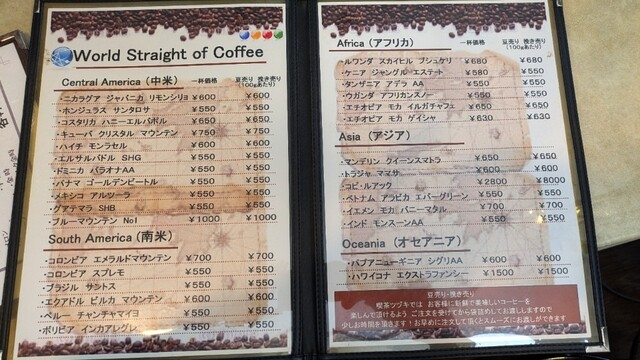 World Straight of Coffee
Central America (中米) 一杯価格 豆売り 挽き売り (100gあたり)
・ニカラグア ジャパニカ リモンシリョ ¥600 ¥600
・ホンジュラス サンタロサ ¥550 ¥550
・コスタリカ ハニーエルパボル ¥650 ¥650
・キューバ クリスタル マウンテン ¥750 ¥750
・ハイチ モンラセル ¥600 ¥600
・エルサルバドル SHG ¥550 ¥550
・ドミニカ バラオナAA ¥550 ¥550
・パナマ ゴールデンビートル ¥550 ¥550
・メキシコ アルツーラ ¥550 ¥550
・グアテマラ SHB ¥550 ¥550
・ブルーマウンテン No1 ¥1000 ¥1000
South America (南米)
・コロンビア エメラルドマウンテン ¥700 ¥700
・コロンビア スプレモ ¥550 ¥550
・ブラジル サントス ¥550 ¥550
・エクアドル ビルカ マウンテン ¥600 ¥600
・ペルー チャンチャマイヨ ¥550 ¥550
・ボリビア インカアレグレ ¥550 ¥550
Africa (アフリカ) 一杯価格 豆売り 挽き売り (100gあたり)
・ルワンダ スカイヒル ブシェケリ ¥680 ¥680
・ケニア ジャングル エステート ¥580 ¥550
・タンザニア アデラ AA ¥550 ¥550
・ウガンダ アフリカンスノー ¥550 ¥550
・エチオピア モカ イルガチャフェ ¥650 ¥650
・エチオピア モカ ゲイシャ ¥630 ¥630
Asia (アジア)
・マンデリン クイーンスマトラ ¥650 ¥650
・トラジャ ママサ ¥600 ¥600
・コピ・ルアック ¥2800 ¥8000
・ベトナム アラビカ エバーグリーン ¥550 ¥550
・イエメン モカ バニーマタル ¥700 ¥700
・インド モンスーンAA ¥550 ¥550
Oceania (オセアニア)
・パプアニューギニア シグリAA ¥600 ¥600
・ハワイコナ エクストラファンシー ¥1500 ¥1500
豆売り・挽き売り
喫茶ツヅキでは お客様に新鮮で美味しいコーヒーを
楽しんで頂けるよう ご注文を受けてから袋詰めしてお渡ししますので
少しお時間を頂きます！お早めに注文して頂くとスムーズにお渡しができます